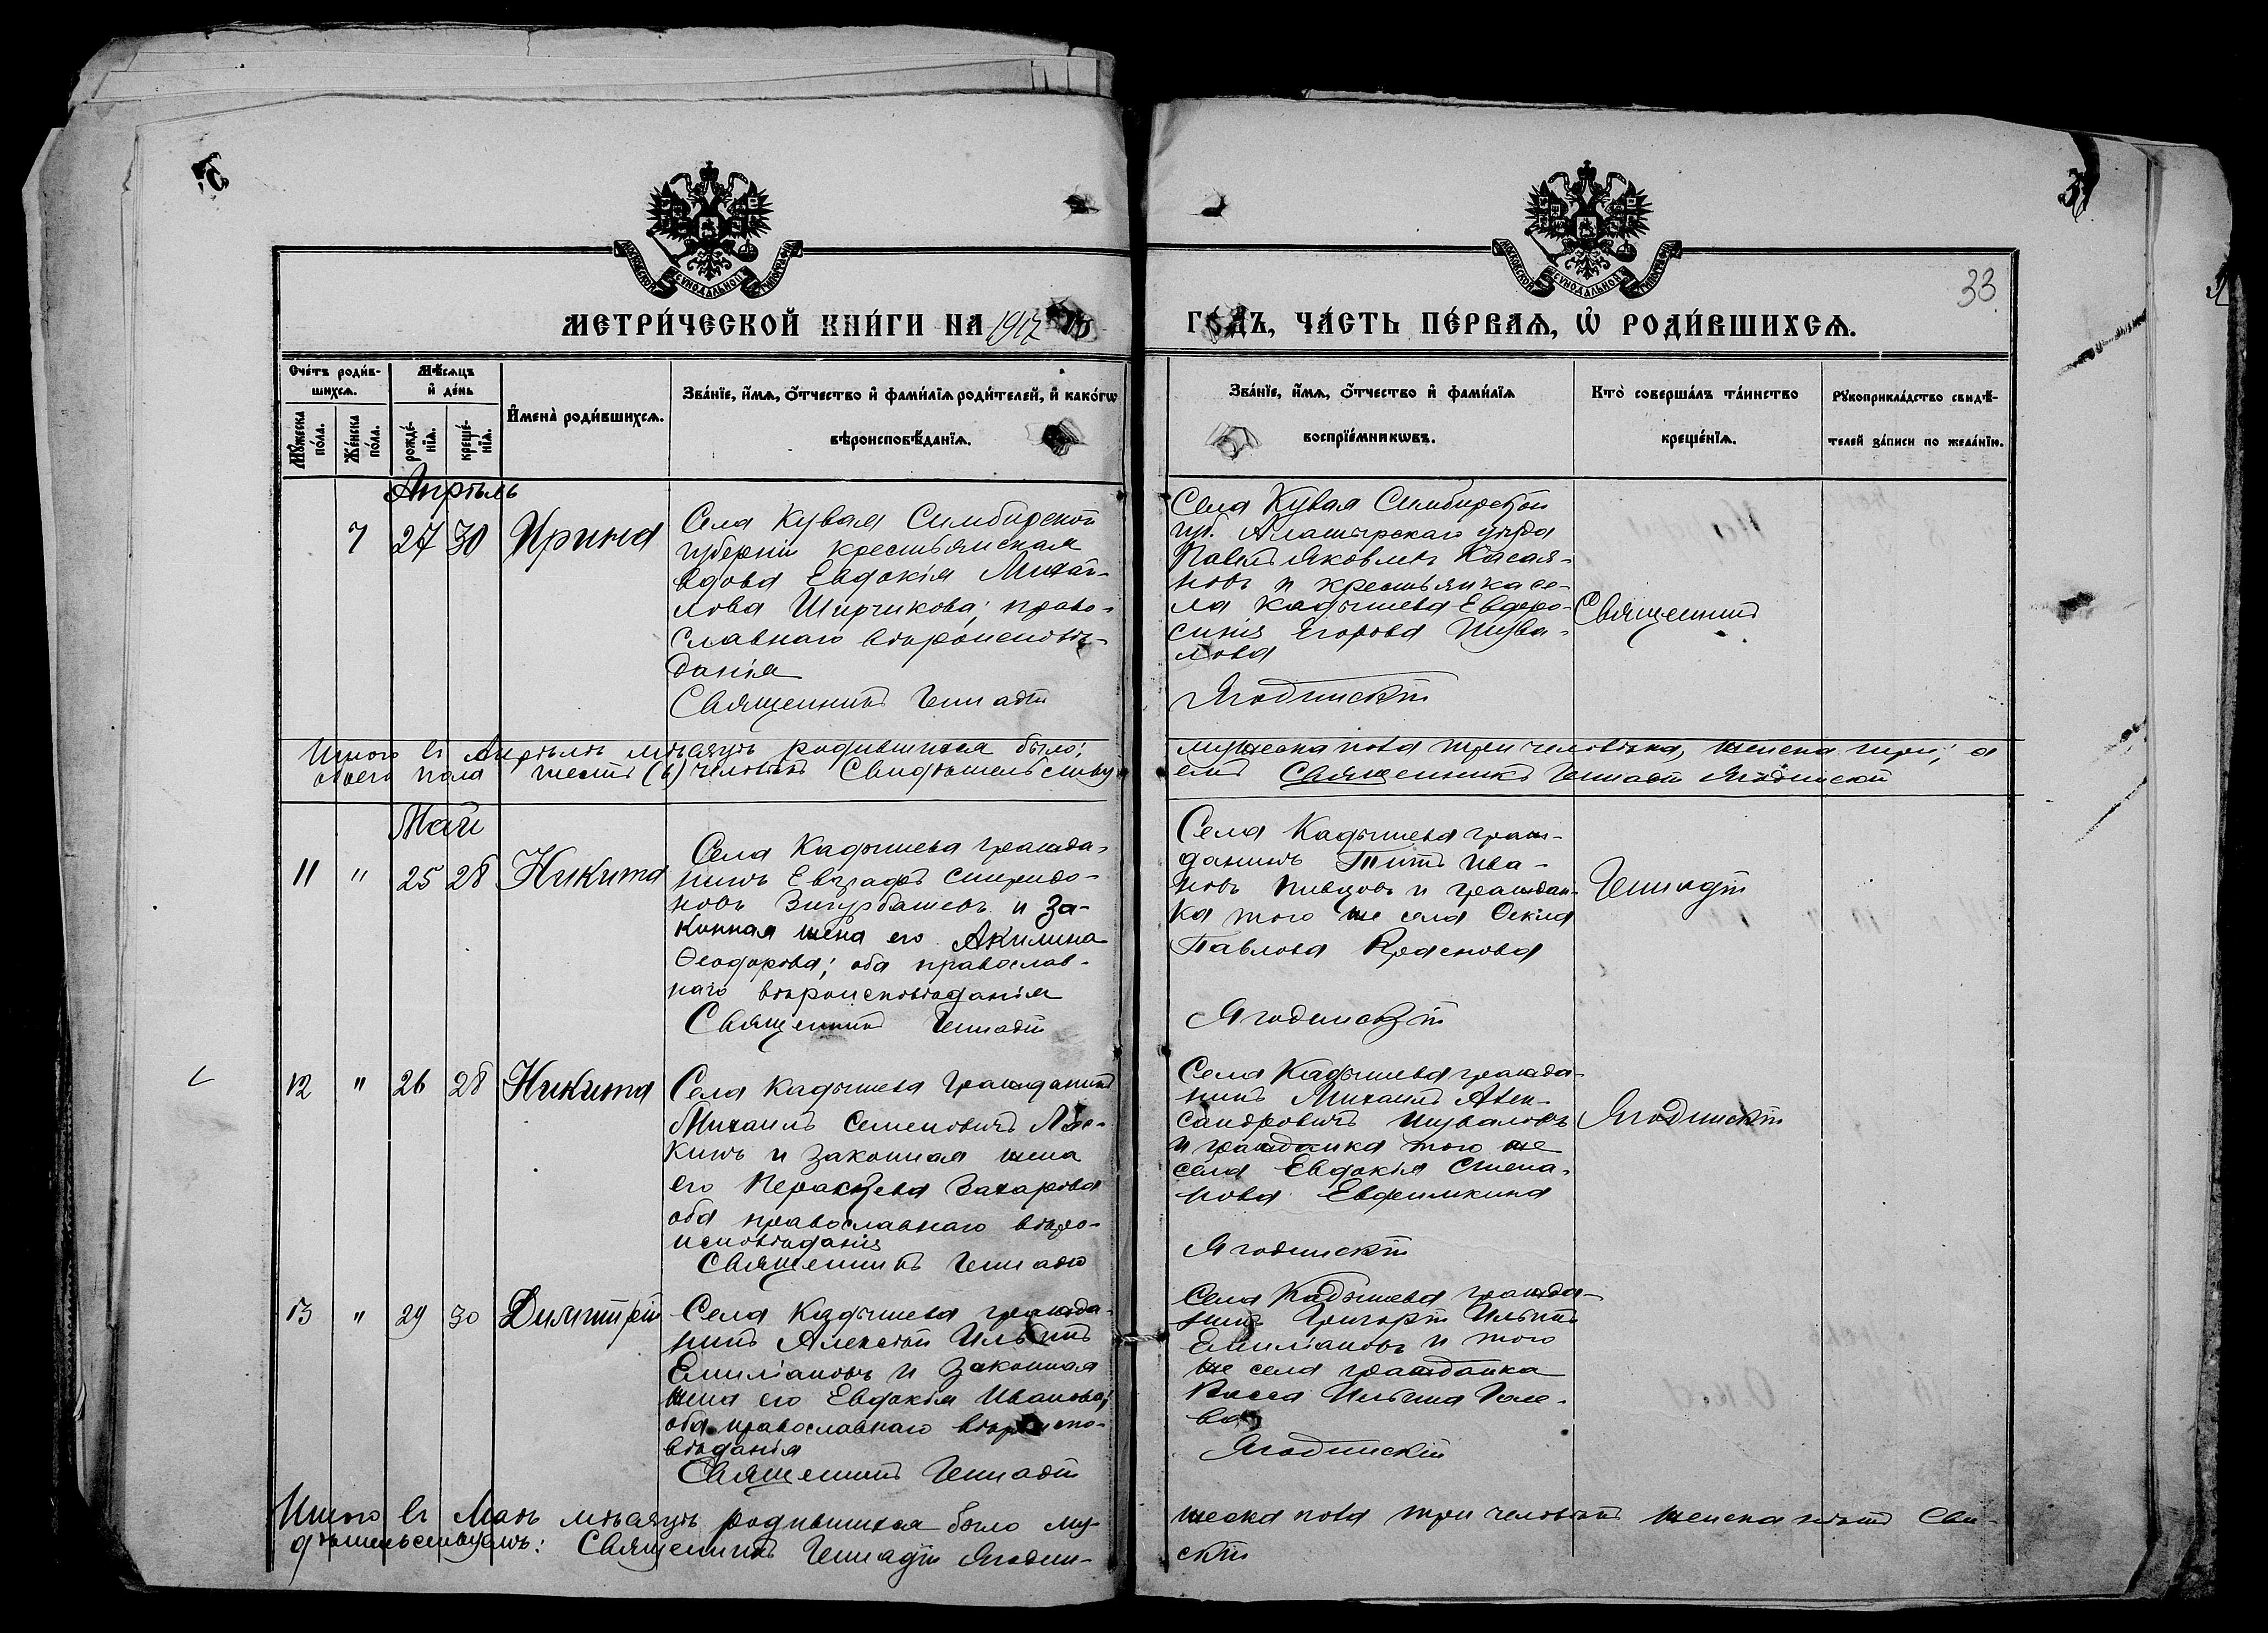 33
МОСКОВСКОЙ СѴНОДАЛЬНОЙ ТИПОГРАФІИ
МОСКОВСКОЙ СѴНОДАЛЬНОЙ ТИПОГРАФІИ
МЕТРИ́ЧЕСКОЙ КНИ́ГИ НА 1917
ГО́ДЪ, ЧА́СТЬ ПЕ́РВАѦ, Ѡ҆ РОДИ́ВШИХСѦ.
Сче́тъ роди́в-
шихсѧ.
Мѣ́сяцъ
и҆ де́нь
Мꙋ́жеска
по́ла.
Же́нска
по́ла.
рожде́-
нїѧ.
креще́-
нїѧ.
И҆мена̀ роди́вшихсѧ.
Зва́нїе, и҆́мѧ, ѻ҆́тчество и҆ фами́лїѧ роди́телей, и҆ како́гѡ
вѣроисповѣ́данїѧ.
Зва́нїе, и҆́мѧ, ѻ҆́тчество и҆ фами́лїѧ
воспрїе́мникѡвъ.
Кто̀ соверша́лъ та́инство
креще́нїѧ.
Рꙋкоприкла́дство свидѣ́-
телей за́писи по жела́нїю.
Апрѣль
7 27 30 Ирина
Села Кувая Симбирской
губерніи крестьянская
вдова Евдокія Михай-
лова Ширчикова; право-
славнаго вѣроисповѣ-
данія
Священникъ Геннадій
Села Кувая Симбирской
губ. Алатырскаго уѣзда
Павелъ Яковлевъ Касая-
новъ и крестьянка се-
ла Кадышева Евфро-
синія Егорова Шува-
лова
Ягодинскій
Священникъ
Итого въ Апрѣлѣ мѣсяцѣ родившихся было:
мужеска пола три человѣка, женска три; а
обоего пола шесть (6) человѣкъ Свидѣтельству
емъ Священникъ Геннадій Ягодинскій
Май
11 " 25 28 Никита
Села Кадышева гражда-
нинъ Евграфъ Спиридо-
новъ и за-
конная жена его Акилина
Ѳеодорова; оба православ-
наго вѣроисповѣданія
Священникъ Геннадій
Села Кадышева граж-
данинъ Титъ Ива-
новъ Пивцовъ и граждан-
ка того же села Ѳекла
Павлова Краснова
Ягодинскій
Геннадій
12 " 26 28 Никита
Села Кадышева гражданинъ
Михаилъ Семеновичъ
и законная жена
его Параскева Захарова
оба православнаго вѣро-
исповѣданія
Священникъ Геннадій
Села Кадышева гражда-
нинъ Михаилъ Алек-
сандровичъ Шуваловъ
и гражданка того же
села Евдокія Степа-
нова Евфимкина
Ягодинскій
Ягодинскій
13 " 29 30 Димитрій
Села Кадышева гражда-
нинъ Алексѣй Ильинъ
Емиліановъ и законная
жена его Евдокія Иванова;
оба православнаго вѣроиспо-
вѣданія
Священникъ Геннадій
Села Кадышева гражда-
нинъ Григорій Ильинъ
Емиліановъ и того
же села гражданка
Васса Ильина
Ягодинскій
Итого въ Маѣ мѣсяцѣ родившихся было му-
жеска пола три человѣка женска нѣтъ Сви-
дѣтельствуемъ: Священникъ Геннадій Ягодин-
скій